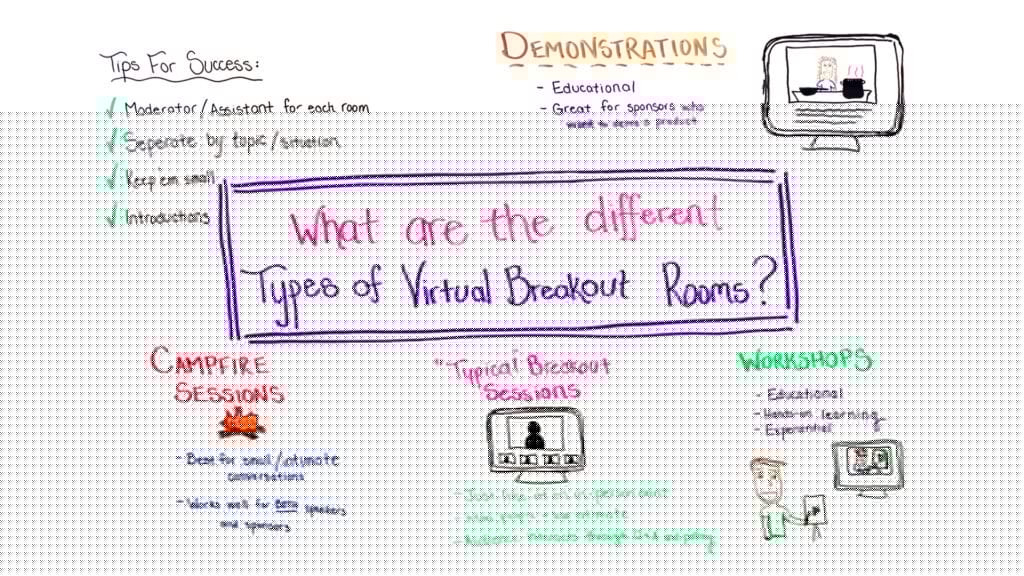 Tips For Success:
✓ Moderator/Assistant for each room
✓ Seperate by topic/situation
✓ Keep'em small
✓ Introductions
DEMONSTRATIONS
- Educational
- Great for sponsors who
want to demo a product
What are the different
Types of Virtual Breakout Rooms?
CAMPFIRE
SESSIONS
- Best for small/intimate
conversations
- Works well for speakers
and sponsors
"Typical" Breakout
Sessions
- Just like at an in-person event
- Audience interacts through Q+A and polling
WORKSHOPS
- Educational
- Hands-on learning
- Experiential